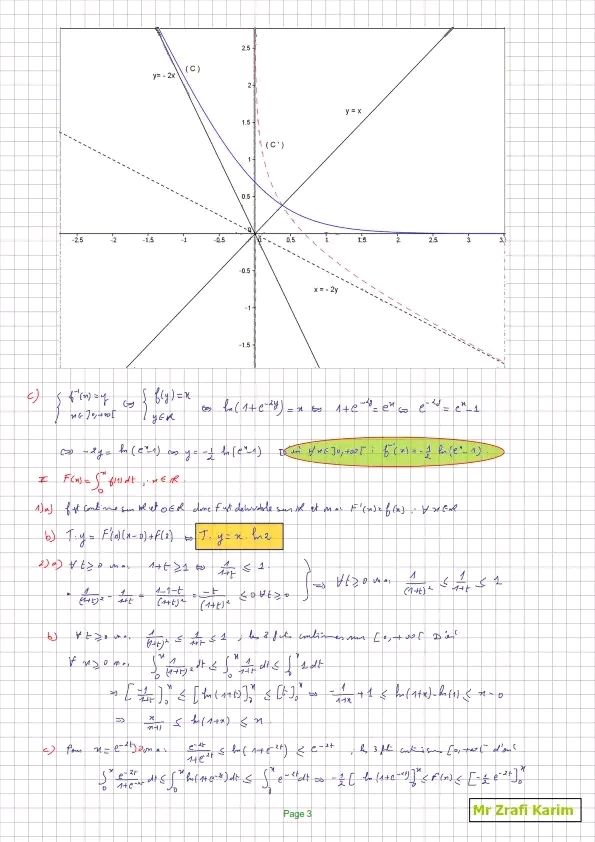 2.5
y= - 2x
( C )
2
y = x
1.5
( C ' )
1
0.5
0
-2.5 -2 -1.5 -1 -0.5 0.5 1 1.5 2 2.5 3
-0.5
x = - 2y
-1
-1.5
c) { f⁻¹(x) = y x∈]0,+∞[ ⇔ { f(y) = x y∈ℝ ⇔ ln(1+e^(-2y)) = x ⇔ 1+e^(-2y) = e^x ⇔ e^(-2y) = e^x - 1
⇔ -2y = ln(e^x-1) ⇔ y = -1/2 ln(e^x-1) ∀x∈]0,+∞[ : f⁻¹(x) = -1/2 ln(e^x-1).
II F(x) = ∫₀^x f(t)dt , x∈ℝ.
1)a) f est continue sur ℝ et 0∈ℝ donc F est dérivable sur ℝ et on a: F'(x) = f(x) ; ∀x∈ℝ
b) T: y = F'(0)(x-0)+F(0) ⇔ T: y = x. ln2
2)a) ∀t⩾0 on a: 1+t⩾1 ⇔ 1/(1+t) ⩽ 1.
• 1/(1+t)² - 1/(1+t) = (1-1-t)/(1+t)² = -t/(1+t)² ⩽ 0 ∀t⩾0 } ⇒ ∀t⩾0 on a: 1/(1+t)² ⩽ 1/(1+t) ⩽ 1
b) ∀t⩾0 on a: 1/(1+t)² ⩽ 1/(1+t) ⩽ 1 , les 3 fct continues sur [0,+∞[ D'où
∀x⩾0 on a: ∫₀^x 1/(1+t)² dt ⩽ ∫₀^x 1/(1+t) dt ⩽ ∫₀^x 1 dt
[-1/(1+t)]₀^x ⩽ [ln(1+t)]₀^x ⩽ [t]₀^x ⇔ -1/(1+x) + 1 ⩽ ln(1+x) - ln(1) ⩽ x - 0
⇒ x/(x+1) ⩽ ln(1+x) ⩽ x.
c) Pour x = e^(-2t)⩾0 on a: e^(-2t)/(1+e^(-2t)) ⩽ ln(1+e^(-2t)) ⩽ e^(-2t) , les 3 fct [0,+∞[ d'où
∫₀^x e^(-2t)/(1+e^(-2t)) dt ⩽ ∫₀^x ln(1+e^(-2t)) dt ⩽ ∫₀^x e^(-2t) dt ⇒ -1/2 [ln(1+e^(-2t))]₀^x ⩽ F(x) ⩽ [-1/2 e^(-2t)]₀^x
Page 3
Mr Zrafi Karim